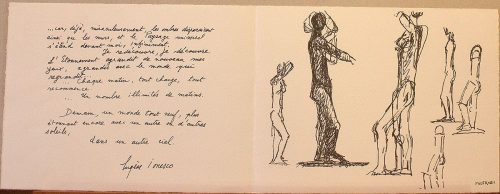 ...car, déjà, miraculeusement, les ombres disparaissent
ainsi que les murs, et le Paysage universel
s'étend devant moi, infiniment.
Je redécouvre, je découvre
L'étonnement agrandit de nouveau mes
yeux, agrandis avec le monde qu'ils
regardent
Chaque matin, tout change, tout
recommence
Un nombre illimité de matins.
Demain, un monde tout neuf, plus
étonnant encore avec un autre ou d'autres
soleils,
dans un autre ciel
Eugène Ionesco